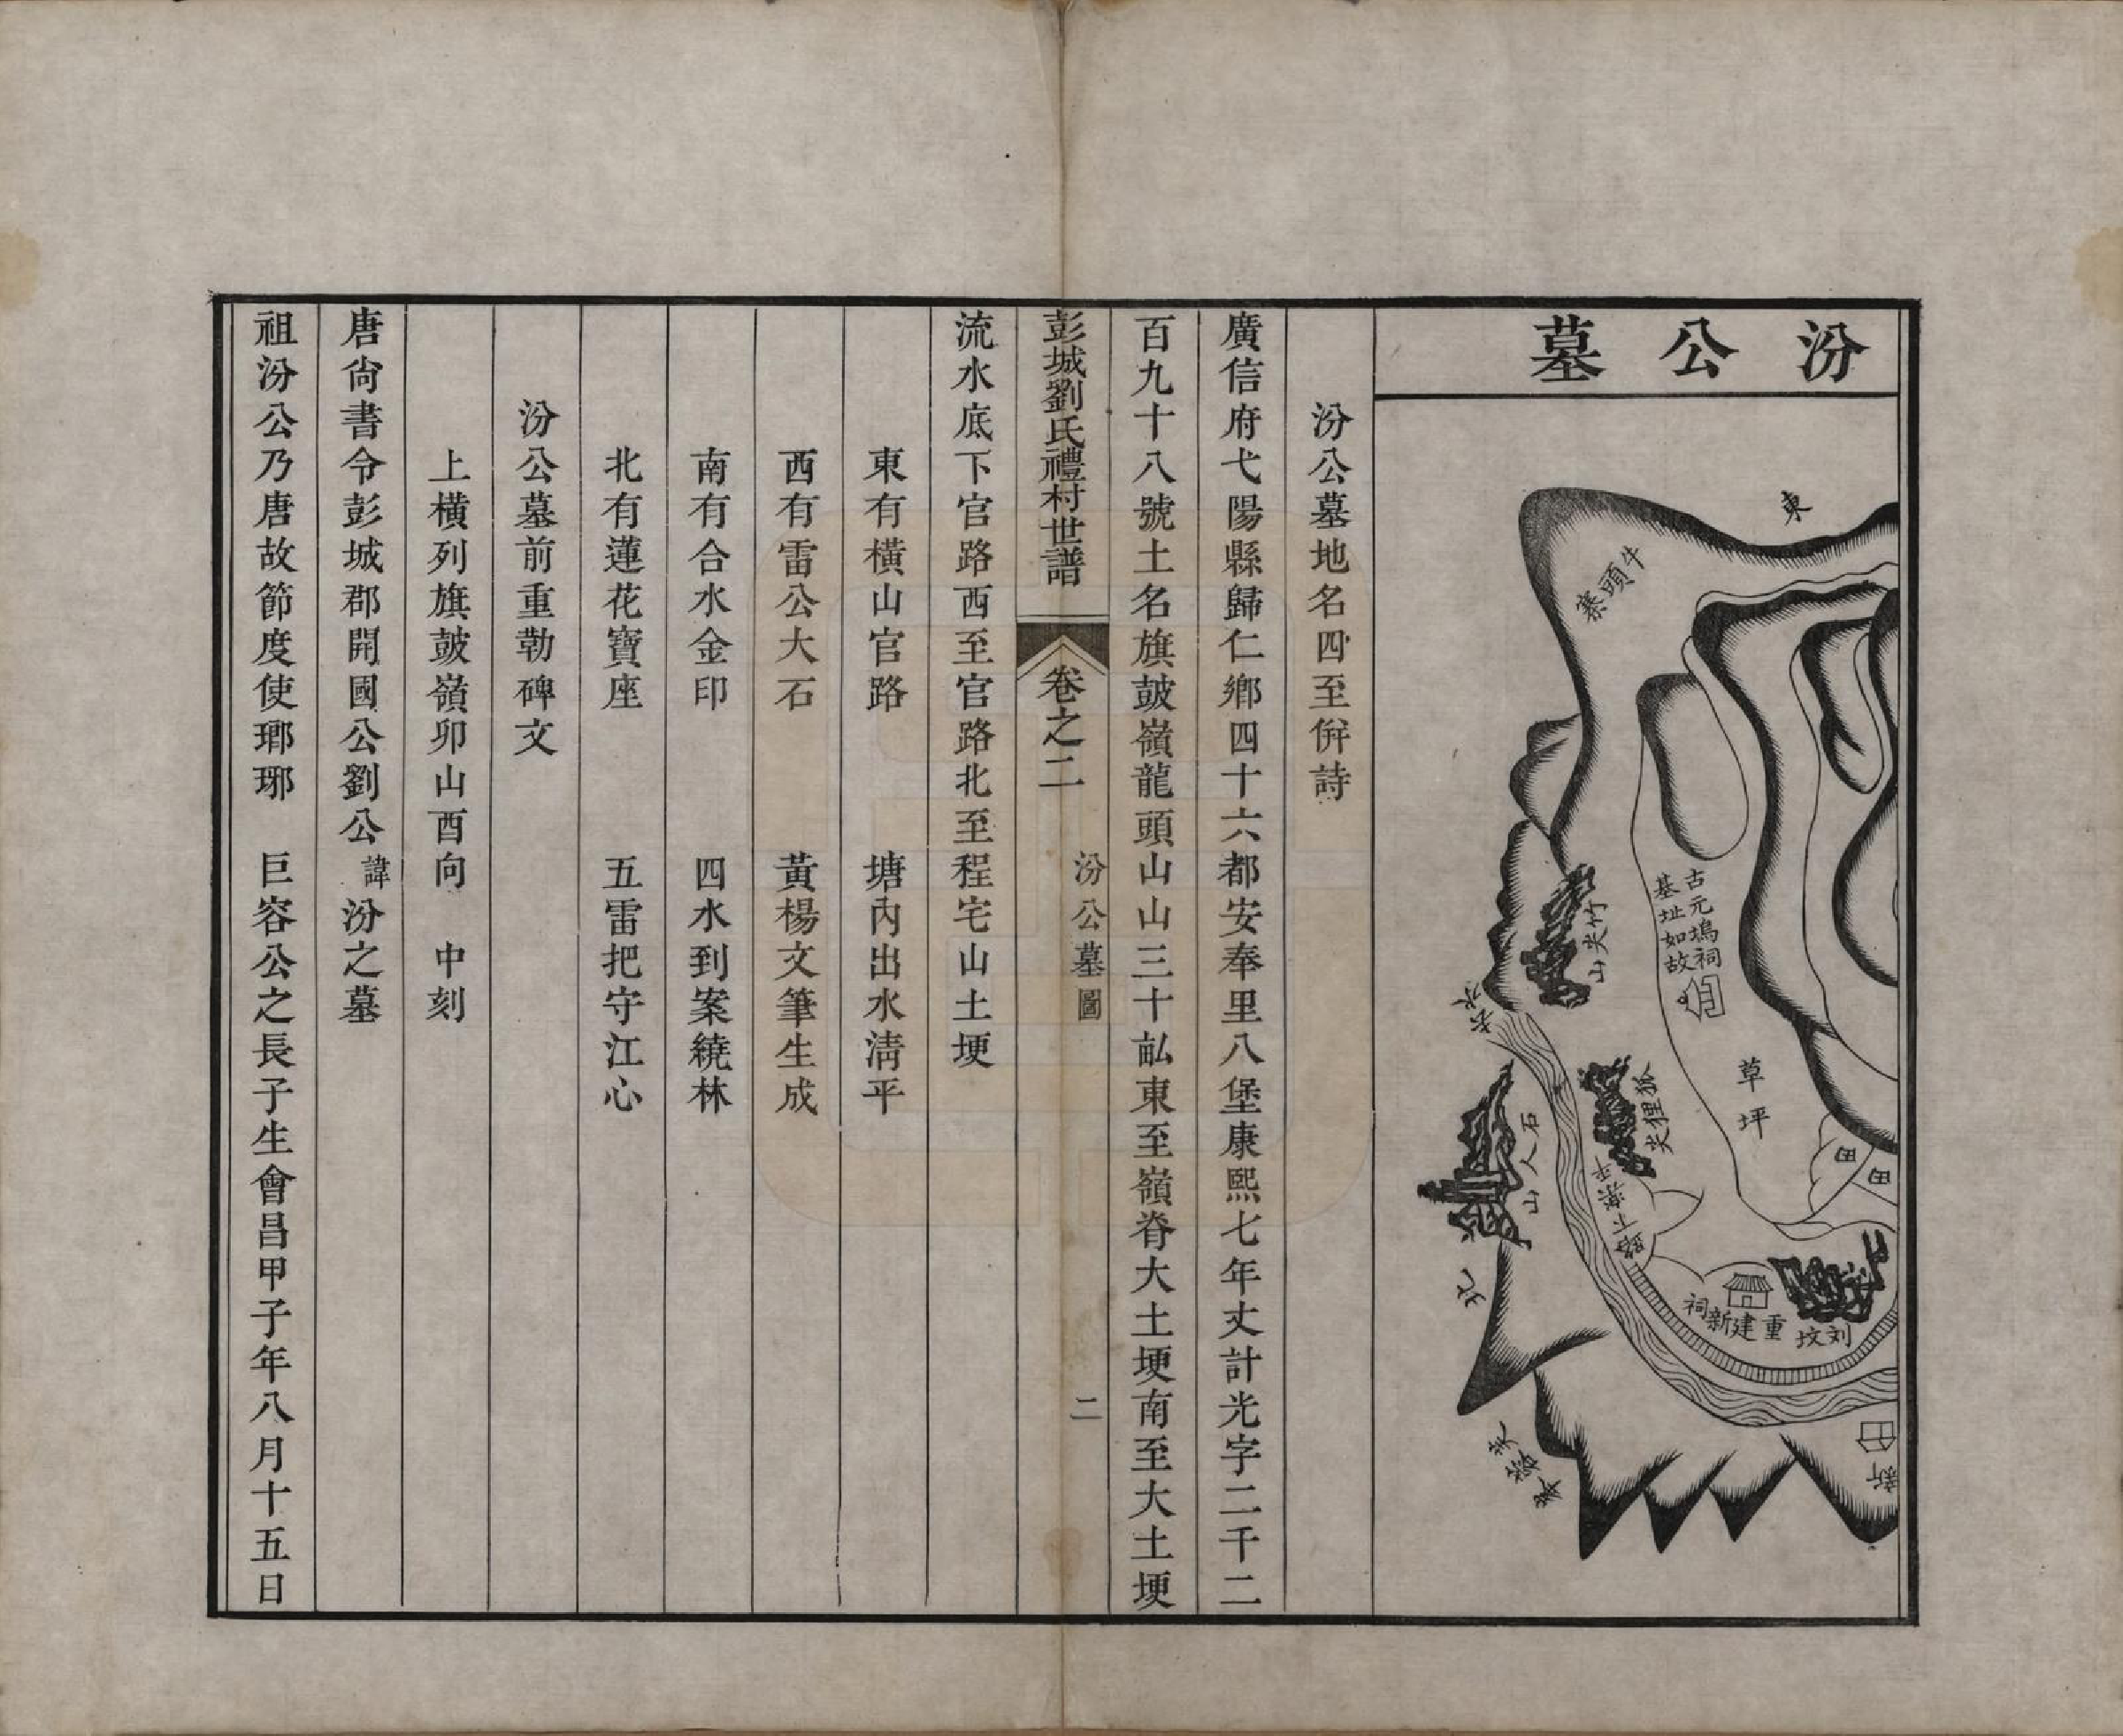 汾公墓
東
牛頭寨
古元塢祠
基址如故
竹尖山
水
草坪
狐狸尖
石人山
田
田
北
重建新祠
刘坟
芙蓉尖
新
汾公墓地名四至併詩
廣信府弋陽縣歸仁鄉四十六都安奉里八堡康熙七年丈計光字二千二
百九十八號土名旗鼓嶺龍頭山山三十畝東至嶺脊大土埂南至大土埂
彭城劉氏禮村世譜 卷之二 汾公墓圖 二
流水底下官路西至官路北至程宅山土埂
東有橫山官路 塘內出水清平
西有雷公大石 黃楊文筆生成
南有合水金印 四水到案繞林
北有蓮花寶座 五雷把守江心
汾公墓前重勒碑文
上橫列旗鼓嶺卯山酉向 中刻
唐尙書令彭城郡開國公劉公諱汾之墓
祖汾公乃唐故節度使瑯琊 巨容公之長子生會昌甲子年八月十五日